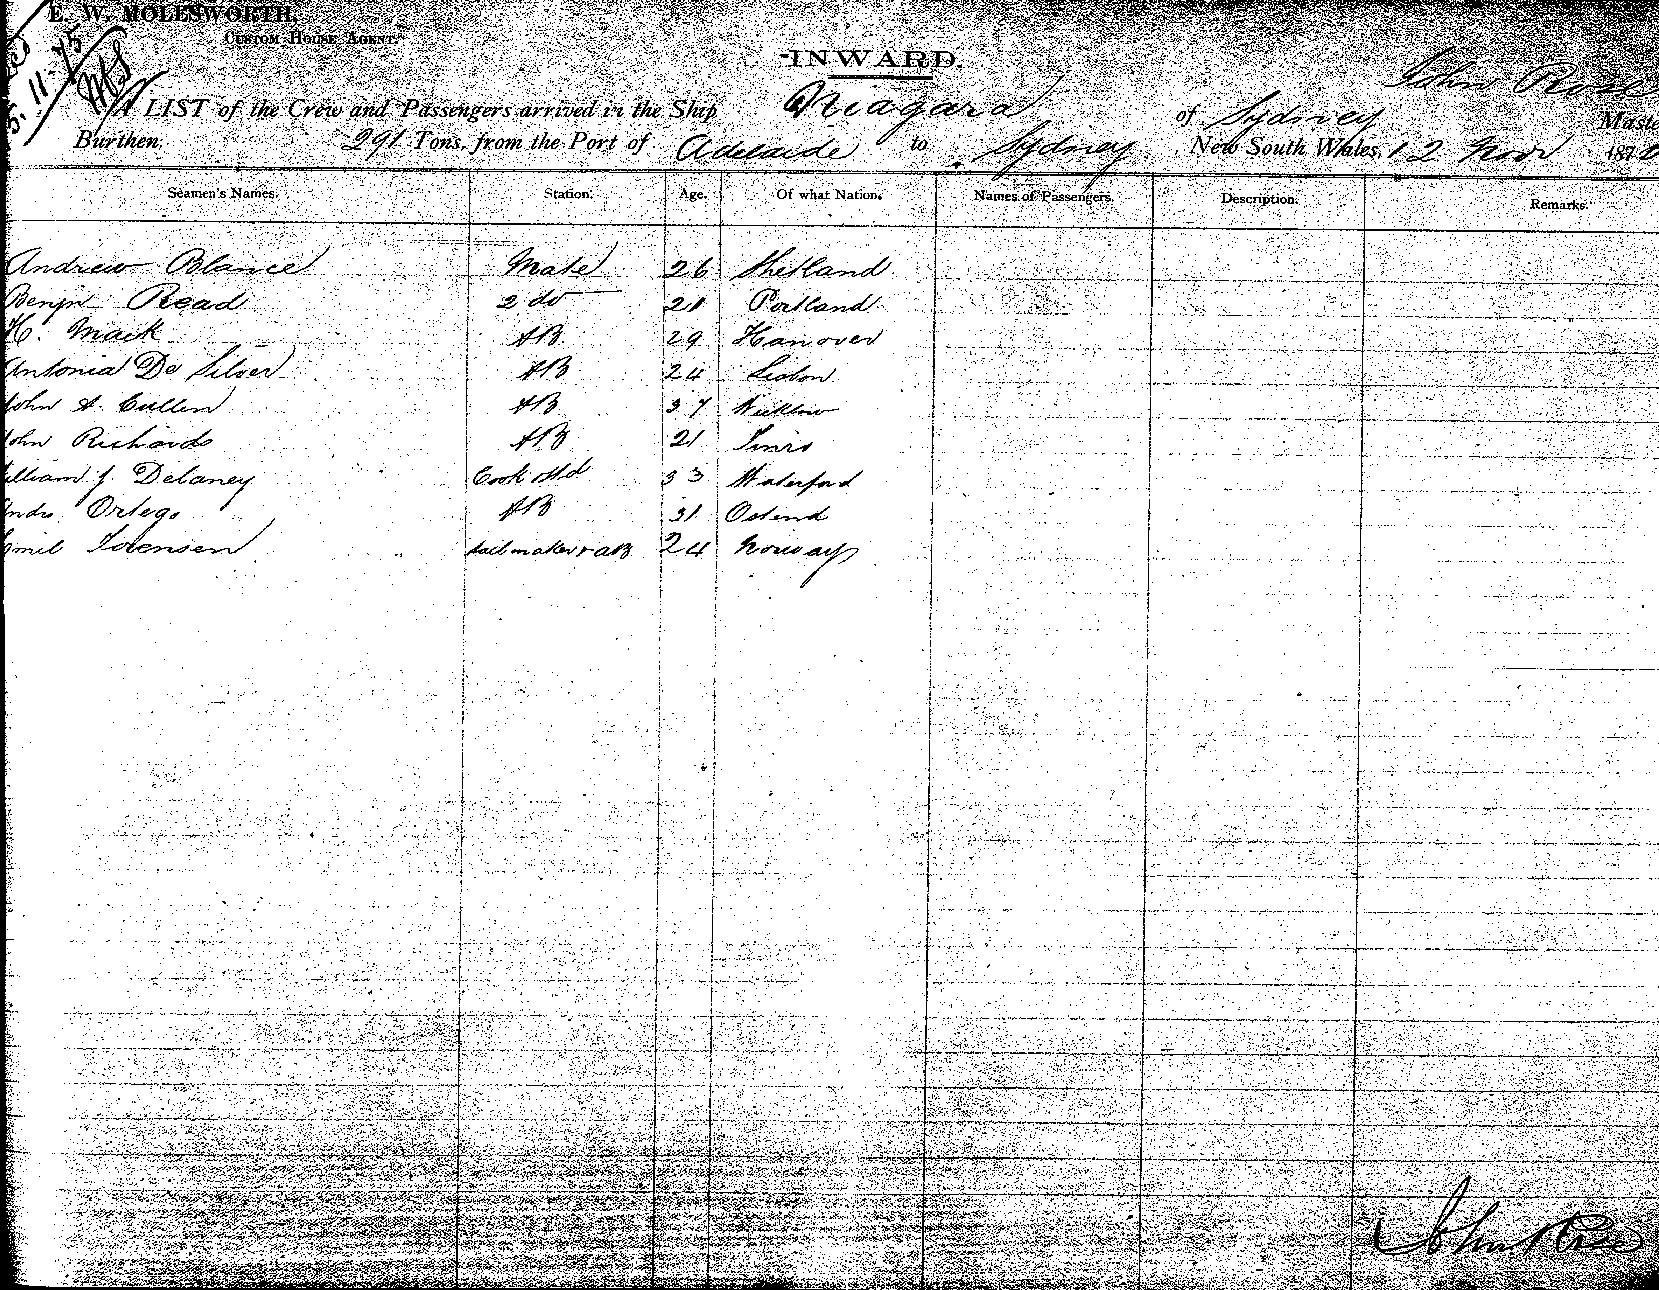 E. W. MOLESWORTH,
CUSTOM HOUSE AGENT.
5. 11. 75
INWARD.
A LIST of the Crew and Passengers arrived in the Ship Niagara of Sydney John Rose Maste
Burthen, 291 Tons, from the Port of Adelaide to Sydney, New South Wales, 12 Novr 187
Seamen's Names. Station. Age. Of what Nation. Names of Passengers. Description. Remarks.
Andrew Blance Mate 26 Shetland
Benjn Read 2 do 21 Portland
H. Mack AB 29 Hanover
Antonia De Silver AB 24 Lisbon
John A. Cullen AB 37 Wicklow
John Richards AB 21
William J. Delaney Cook & Std 33 Waterford
Ortego AB 31 Ostend
Emil Sorensen Sailmaker & AB 24 Norway
John Rose